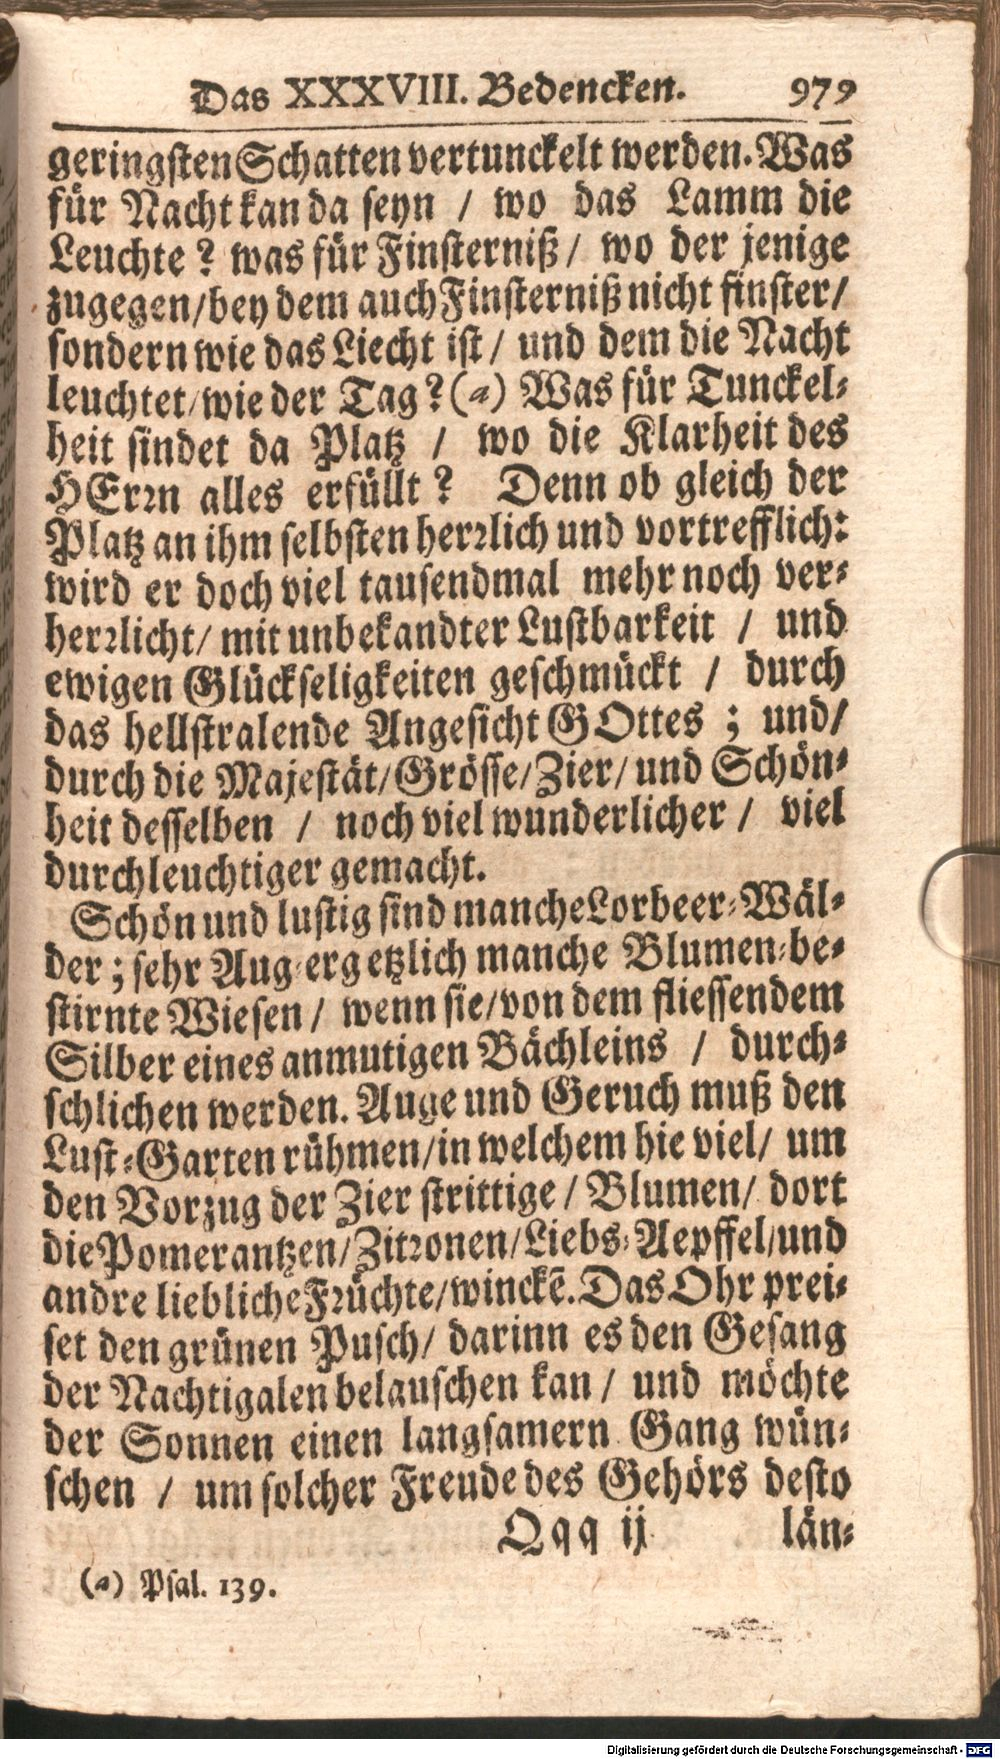 Das XXXVIII. Bedencken. 979
geringsten Schatten vertunckelt werden. Was
für Nacht kan da seyn / wo das Lamm die
Leuchte? was für Finsterniß / wo der jenige
zugegen / bey dem auch Finsterniß nicht finster /
sondern wie das Liecht ist / und dem die Nacht
leuchtet / wie der Tag? (a) Was für Tunckel-
heit findet da Platz / wo die Klarheit des
HErrn alles erfüllt? Denn ob gleich der
Platz an ihm selbsten herrlich und vortrefflich:
wird er doch viel tausendmal mehr noch ver-
herrlicht / mit unbekandter Lustbarkeit / und
ewigen Glückseligkeiten geschmückt / durch
das hellstralende Angesicht GOttes ; und /
durch die Majestät / Grösse / Zier / und Schön-
heit desselben / noch viel wunderlicher / viel
durchleuchtiger gemacht.
Schön und lustig sind manche Lorbeer-Wäl-
der ; sehr Aug-ergetzlich manche Blumen-be-
stirnte Wiesen / wenn sie / von dem fliessendem
Silber eines anmutigen Bächleins / durch-
schlichen werden. Auge und Geruch muß den
Lust-Garten rühmen / in welchem hie viel / um
den Vorzug der Zier strittige / Blumen / dort
die Pomerantzen / Zitronen / Liebs-Aepffel / und
andre liebliche Früchte / winckē. Das Ohr prei-
set den grünen Pusch / darinn es den Gesang
der Nachtigalen belauschen kan / und möchte
der Sonnen einen langsamern Gang wün-
schen / um solcher Freude des Gehörs desto
Qqq ij län-
(a) Psal. 139.
Digitalisierung gefördert durch die Deutsche Forschungsgemeinschaft - DFG